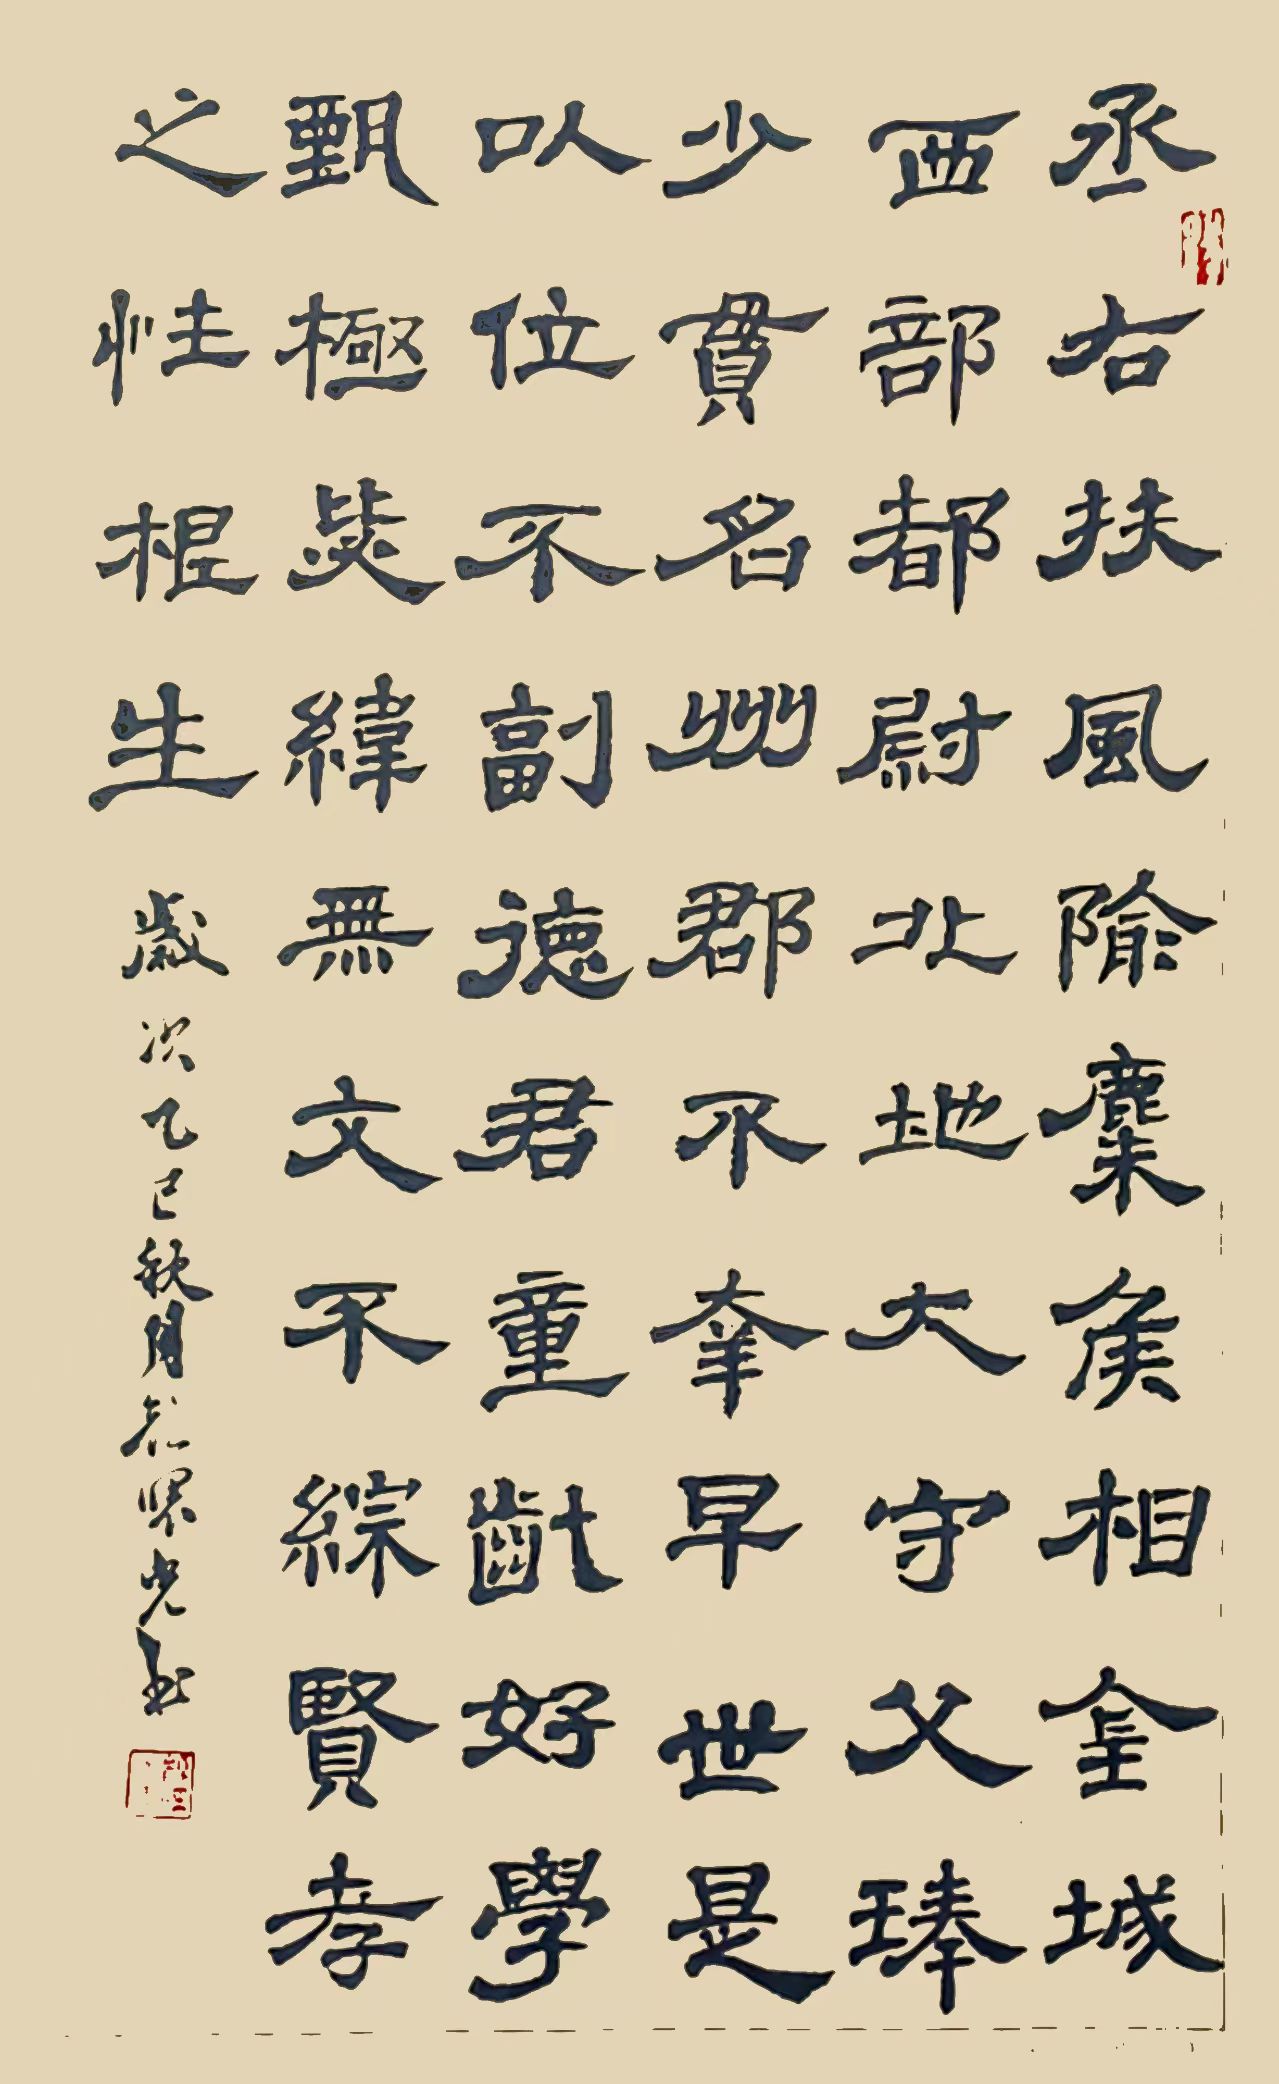 丞右扶風隃麋侯相金城
西部都尉北地大守父琫
少貫名州郡不幸早世是
以位不副德君童齔好學
甄極毖緯無文不綜賢孝
之性根生
歲次乙巳秋月光书